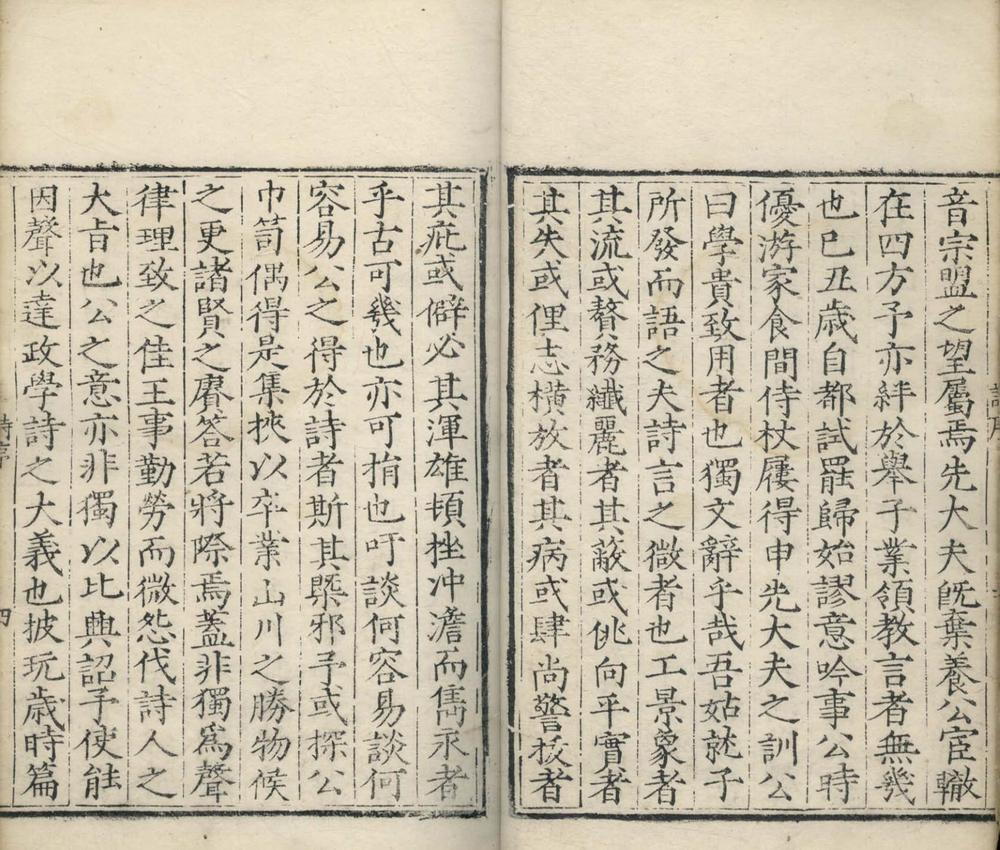 音宗盟之望屬焉先大夫旣棄養公宦轍
在四方予亦絆於舉子業領教言者無幾
也己丑歲自都試罷歸始謬意吟事公時
優游家食間侍杖屨得申先大夫之訓公
曰學貴致用者也獨文辭乎哉吾姑就子
所發而語之夫詩言之微者也工景象者
其流或贅務纖麗者其蔽或佻向平實者
其失或俚志橫放者其病或肆尚警拔者
其疵或僻必其渾雄頓挫冲澹而雋永者
乎古可幾也亦可㨂也吁談何容易談何
容易公之得於詩者斯其槩邪予或探公
巾笥偶得是集挾以卒業山川之勝物候
之更諸賢之賡答若將際焉蓋非獨爲聲
律理致之佳王事勤勞而微怨代詩人之
大旨也公之意亦非獨以比興詔予使能
因聲以達政學詩之大義也披玩歲時篇
詩序
四